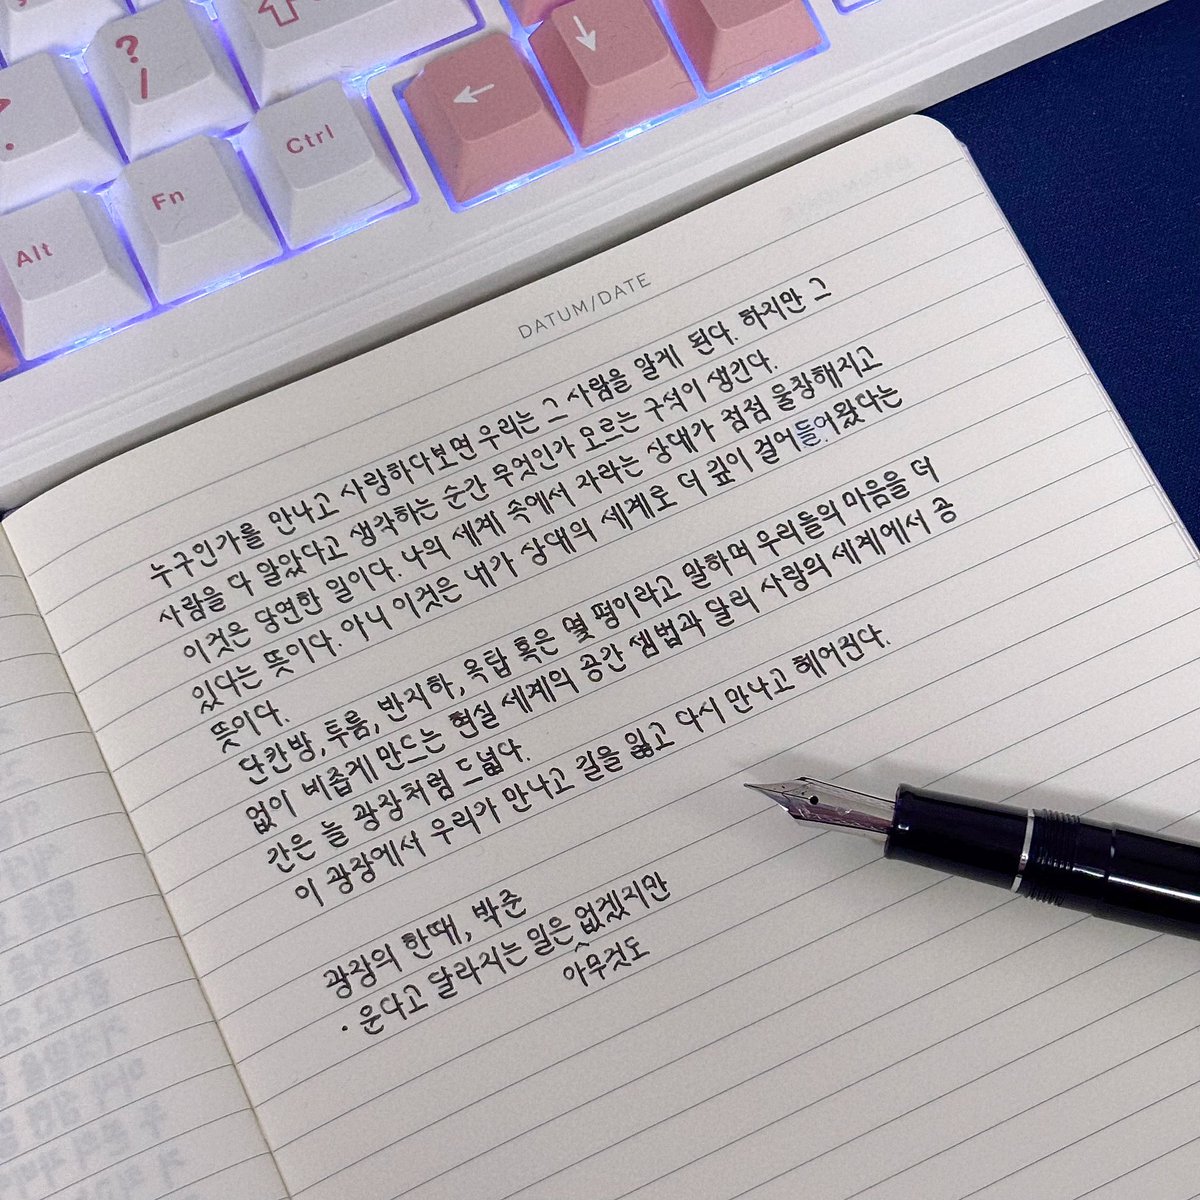 ?
/
.
Alt
Fn
Ctrl
⇧
←
↓
DATUM/DATE
누구인가를 만나고 사랑하다보면 우리는 그 사람을 알게 된다. 하지만 그
사람을 다 알았다고 생각하는 순간 무엇인가 모르는 구석이 생긴다.
이것은 당연한 일이다. 나의 세계 속에서 자라는 상대가 점점 울창해지고
있다는 뜻이다. 아니 이것은 내가 상대의 세계로 더 깊이 걸어들어왔다는
뜻이다.
단칸방, 투룸, 반지하, 옥탑 혹은 몇 평이라고 말하며 우리들의 마음을 더
없이 비좁게 만드는 현실 세계의 공간 셈법과 달리 사랑의 세계에서 공
간은 늘 광장처럼 드넓다.
이 광장에서 우리가 만나고 길을 잃고 다시 만나고 헤어진다.
광장의 한때, 박준
· 운다고 달라지는 일은 없겠지만
아무것도